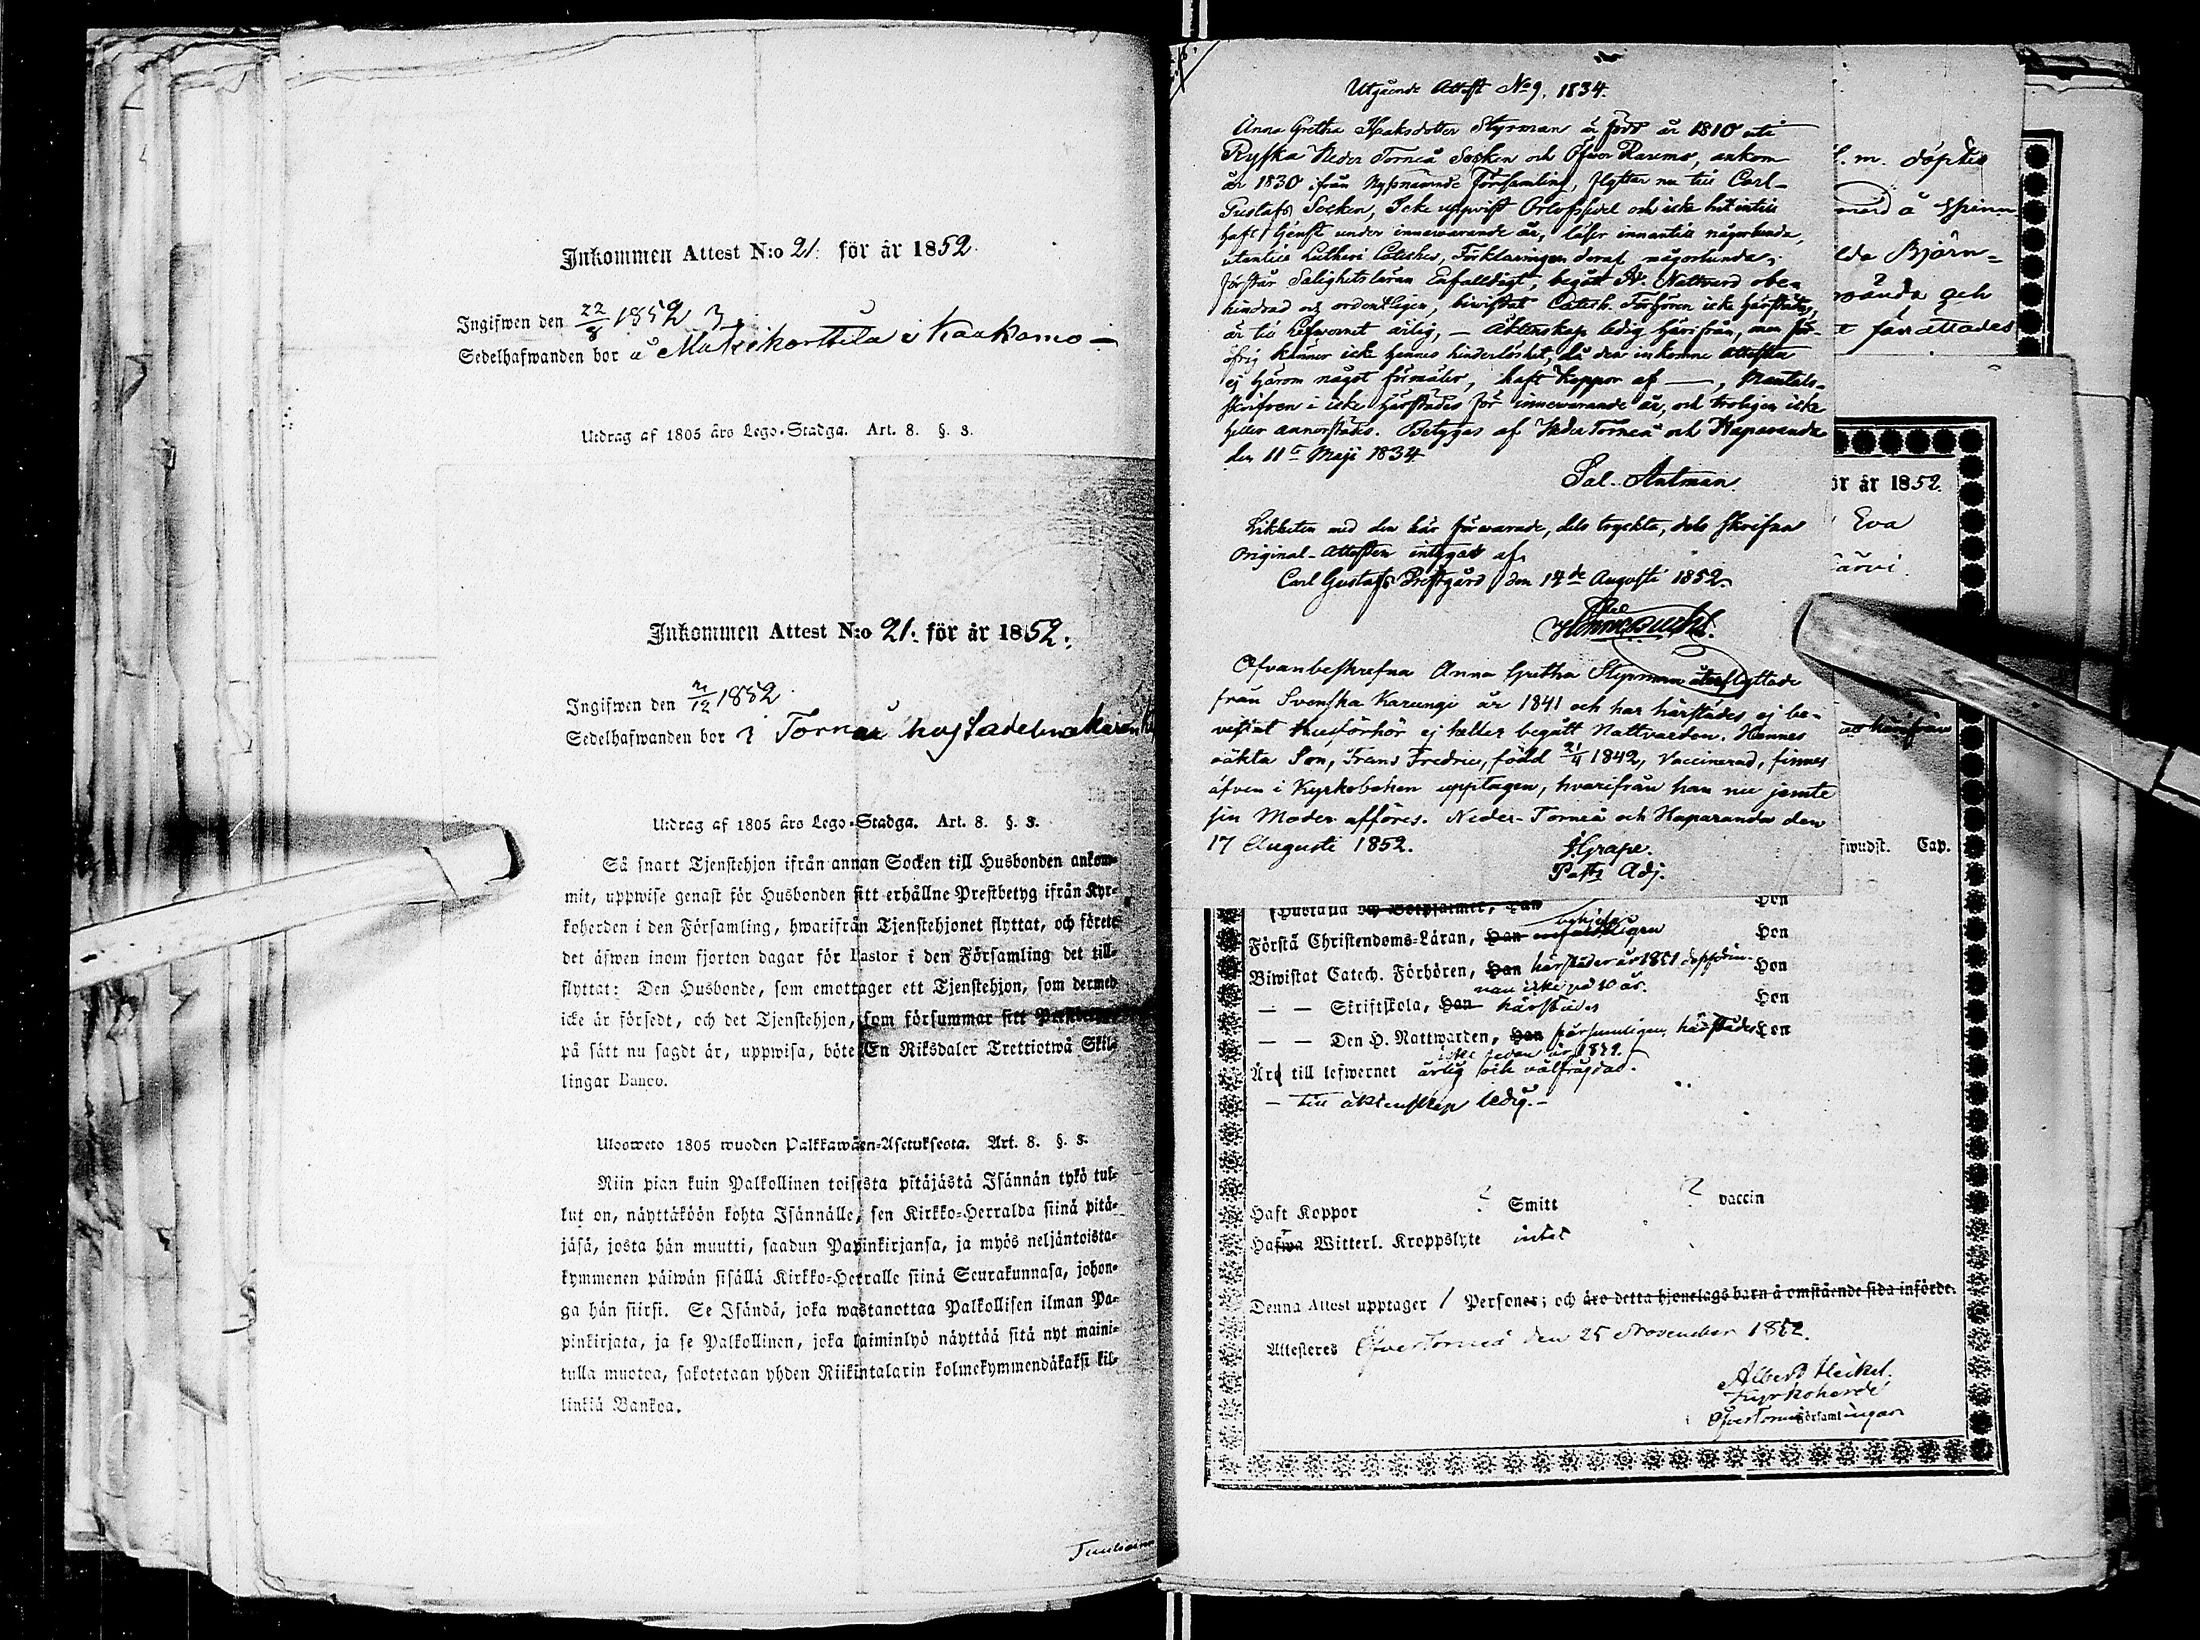 Inkommen Attest N:o 21. för år 1852.
Ingifwen den 22/8 1852
Sedelhafwanden bor å Matikorttila i Kaakamo –
Utdrag af 1805 års Lego-Stadga. Art. 8. §. 3.
Inkommen Attest N:o 21. för år 1852.
Ingifwen den 2/12 1852
Sedelhafwanden bor i Torneå hos Sadelmakaren
Utdrag af 1805 års Lego-Stadga. Art. 8. §. 3.
Så snart Tjenstehjon ifrån annan Socken till Husbonden ankom-
mit, uppwise genast för Husbonden sitt erhållne Prestbetyg ifrån Kyr-
koherden i den Församling, hwarifrån Tjenstehjonet flyttat, och förete
det äfwen inom fjorton dagar för Pastor i den Församling det till-
flyttat: Den Husbonde, som emottager ett Tjenstehjon, som dermed
icke är försedt, och det Tjenstehjon, som försummar sitt Prestbetyg
på sätt nu sagdt är, uppwisa, böte En Riksdaler Trettiotwå Skil-
lingar Banco.
Ulosweto 1805 wuoden Palkkawäen-Asetuksesta. Art. 8. §. 3.
Niin pian kuin Palkollinen toisesta pitäjästä Isännän tykö tul-
lut on, näyttäköön kohta Isännälle, sen Kirkko-Herralda siinä pitä-
jäsä, josta hän muutti, saadun Papinkirjansa, ja myös neljäntoista-
kymmenen päiwän sisällä Kirkko-Herralle siinä Seurakunnasa, johon-
ga hän siirsi. Se Isändä, joka wastanottaa Palkollisen ilman Pa-
pinkirjata, ja se Palkollinen, joka laiminlyö näyttää sitä nyt maini-
tulla muotoa, sakotetaan yhden Riikintalarin kolmekymmendäkaksi kil-
linkiä Bankoa.
Utgående Attest No 9. 1834.
Anna Gretha Isaksdotter Styrman är född år 1810 uti
Ryska Neder Torneå Socken och Öfver Raumo, ankom
år 1830 ifrån nyssnämnde Församling, flyttar nu till Carl-
Gustafs Socken, Icke uppvist Orlofssedel och icke hit intill
haft tjenst under innewarande år, läser innantill någorlunda,
utantill Lutheri Cateches, Förklaringen deraf någorlunda,
förstår Salighetsläran Enfalldigt, begått H. Nattvard obe-
hindrad och ordentligen, biwistat Catech. Förhören icke härstädes,
är till lefwernet ärlig, – Äktenskap ledig härifrån, men för-
öfrig känner icke hennes hinderlöshet, då den inkomne Attesten
ej härom något förmäler, haft koppor af —, Mantals-
skrifven i icke härstädes för innewarande år, och troligen icke
heller annorstädes. Betygas af Neder Torneå och Haparanda
den 11te Maji 1834.
Sal. Antman.
Likheten med den här förwarade, dels tryckta, dels skrifna
Original-Attesten intygas af
Carl Gustafs Prestgård den 14de Augusti 1852.
Ofvanbeskrefna Anna Gretha Styrman återflyttade
från Svenska Karungi år 1841 och har härstädes ej be-
vistat Husförhör ej heller begått Nattvarden. Hennes
oäkta Son, Frans Fredric, född 21/4 1842, Vaccinerad, finnes
äfven i Kyrkoboken upptagen, hvarifrån han nu jemte
sin Moder afföres. Neder-Torneå och Haparanda den
17 Augusti 1852.
Grape.
Past: Adj.
l. m. döptes
lda Björn-
och
författades
ör år 1852.
Eva
ärvi.
härifrån
fwudst. Cap.
Hon
Förstå Christendoms-Läran, Han Hon
Biwistat Catech. Förhören, Han härstädes år 1851 Hon
men icke på 10 år.
— — Skriftskola, Han härstädes Hon
— — Den H. Nattwarden, Han härstädes Hon
icke sedan år
Äro till lefwernet ärlig och välfrägdad.
– till äktenskap ledig. –
Haft Koppor ? Smitt ? vaccin
Hafwa Witterl. Kroppslyte intet
Denna Attest upptager 1 Personer; och äro detta hjonelags barn å omstående sida införde.
Attesteres Öfvertorneå den 25 November 1852.
Albert Heikel.
Kyrkoherde
Öfvertorneå Församlingar